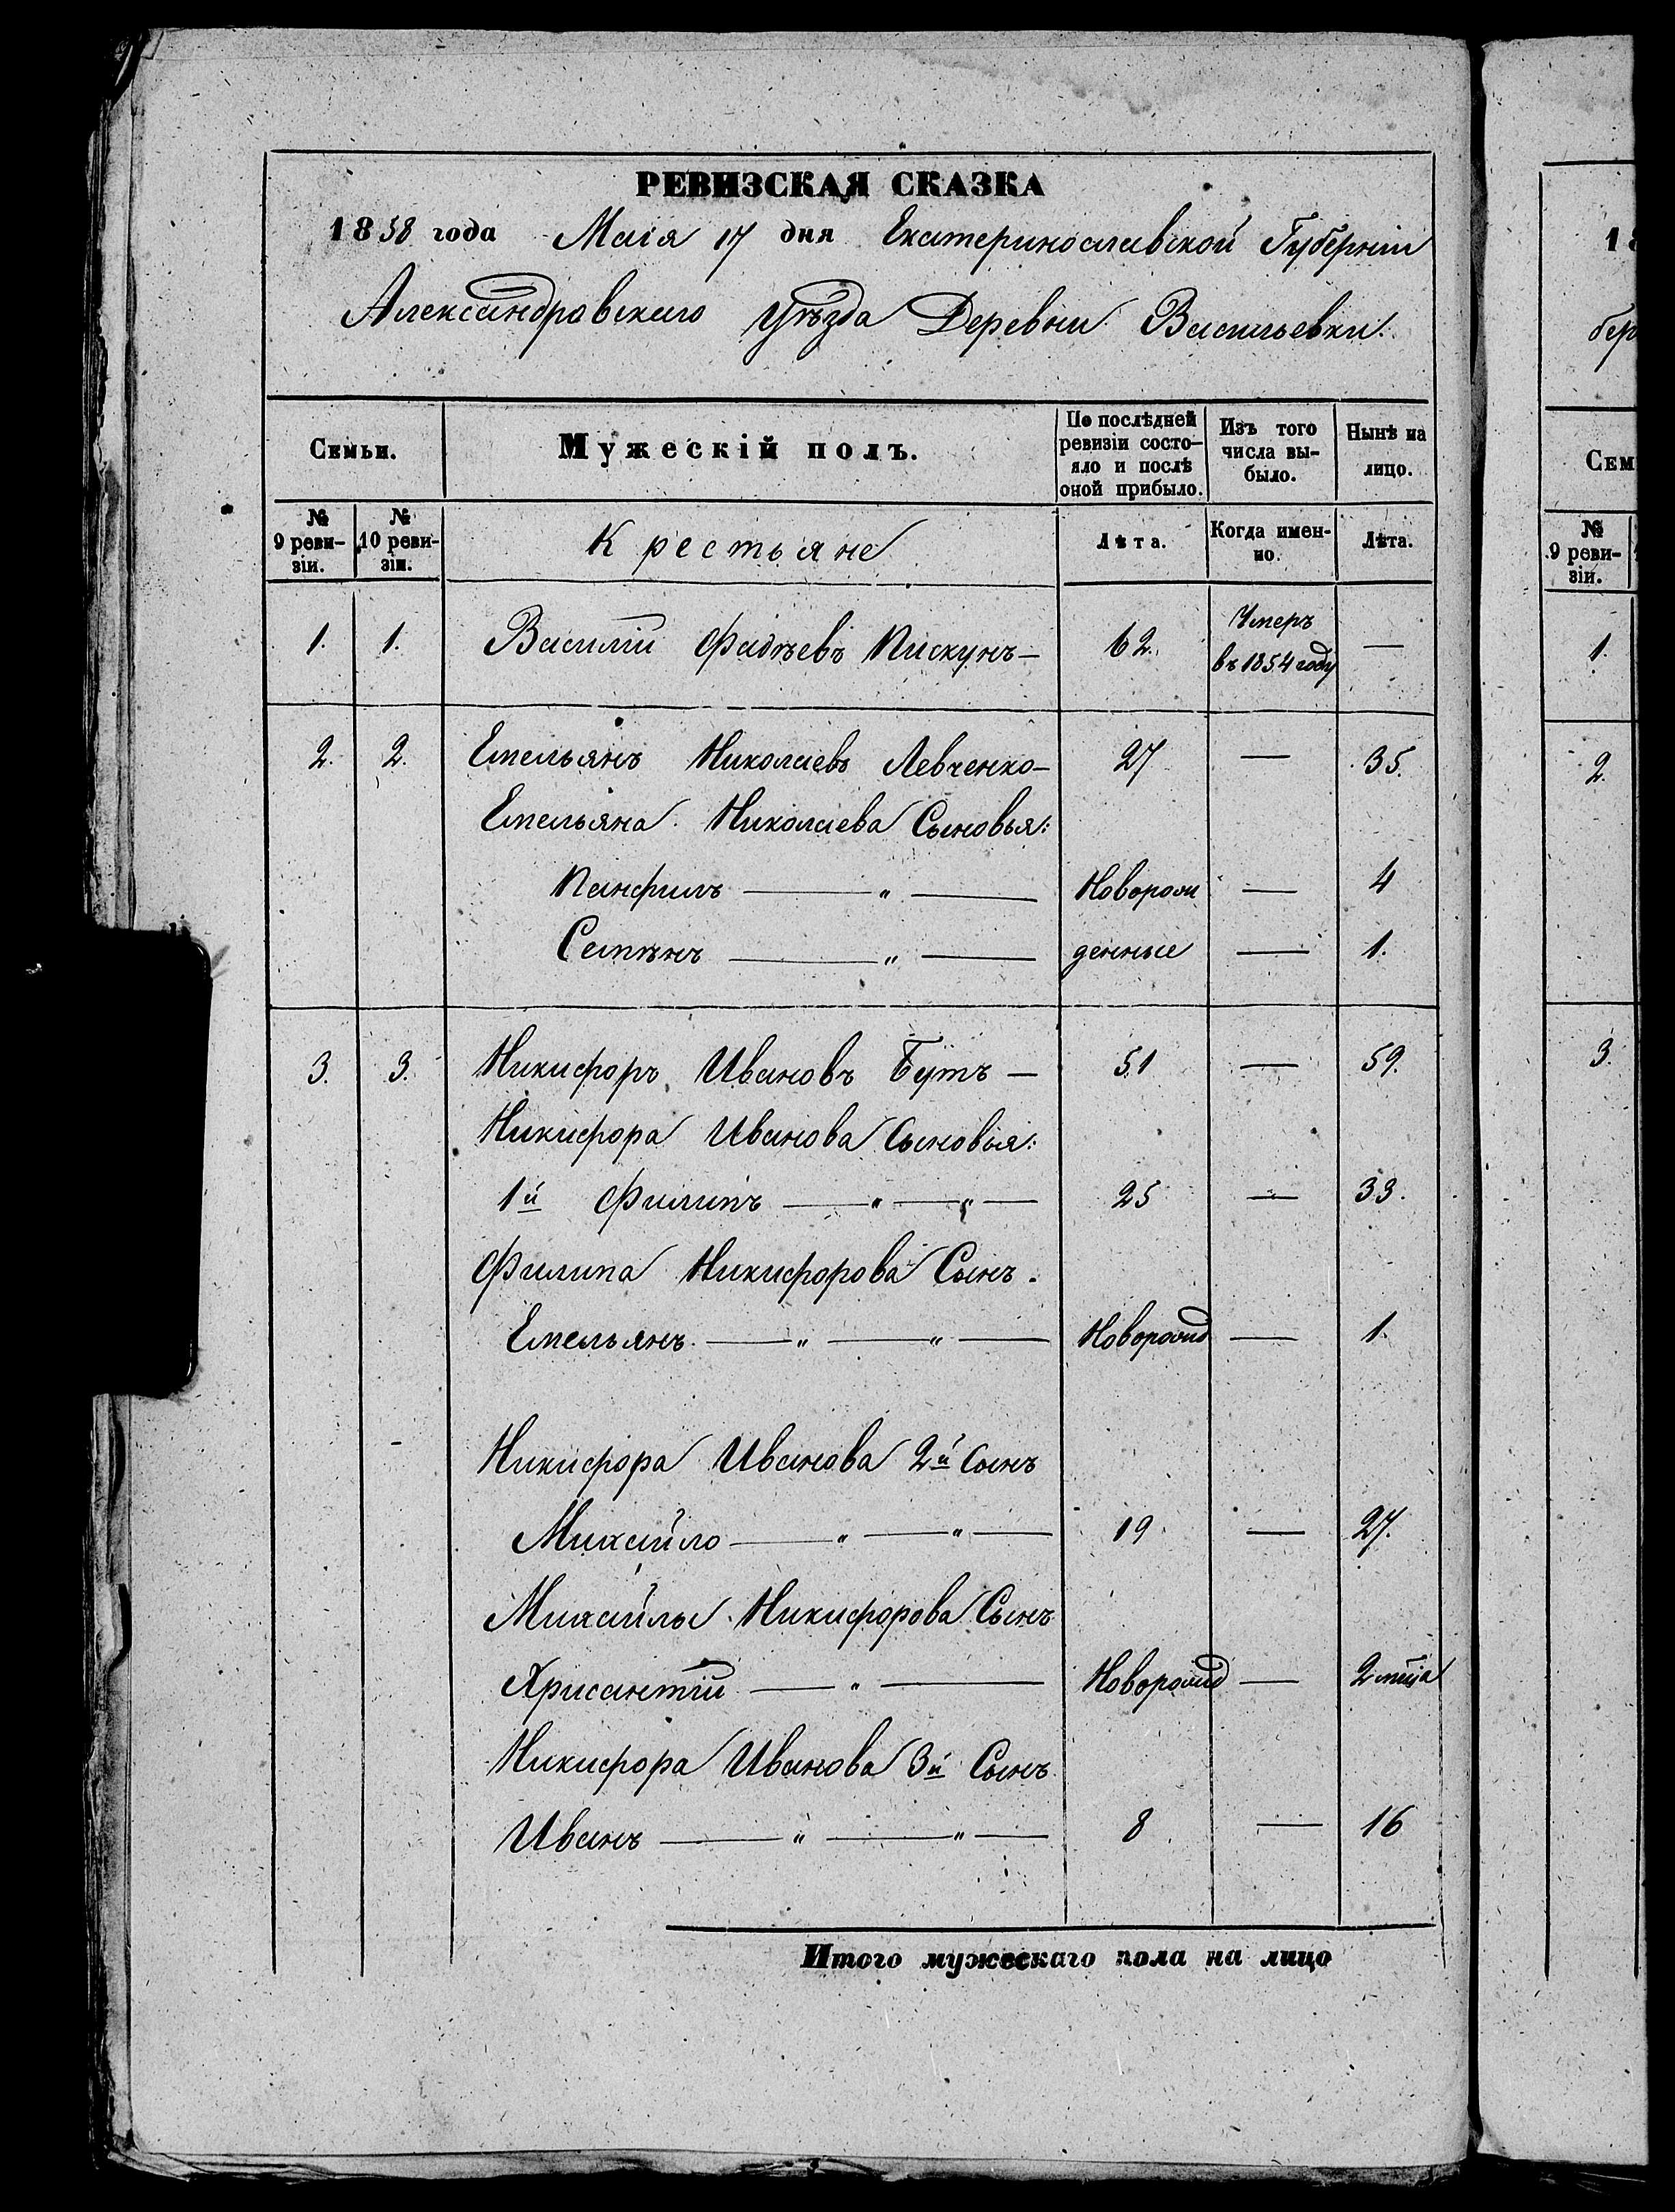 РЕВИЗСКАЯ СКАЗКА
1858 года Маія 17 дня Екатеринославской Губерніи
Александровскаго Уѣзда Деревни Васильевки.
Семьи. Мужескій полъ. По послѣдней ревизіи состояло и послѣ оной прибыло. Изъ того числа выбыло. Нынѣ на лицо.
№ 9 ревизіи. № 10 ревизіи. Крестьяне Лѣта. Когда именно. Лѣта.
1. 1. Василій Фадѣевъ Пискунъ — 62. Умеръ въ 1854 году —
2. 2. Емельянъ Николаевъ Левченко — 27 — 35.
Емельяна Николаева Сыновья:
Панфилъ — „ — Новорож — 4
Семѣнъ — „ — денные — 1.
3. 3. Никифоръ Ивановъ Бутъ — 51 — 59.
Никифора Иванова Сыновья:
1й Филипъ — „ — „ — 25 — 33.
Филипа Никифорова Сынъ.
Емельянъ — „ — „ — Новорожд — 1.
Никифора Иванова 2й Сынъ
Михайло — „ — „ — 19 — 27.
Михайлы Никифорова Сынъ
Хрисантій — „ — Новорожд — 2 мѣца
Никифора Иванова 3й Сынъ
Иванъ — „ — „ — 8 — 16
Итого мужескаго пола на лицо
18
бер
Сем
№ 9 ревизіи.
1.
2.
3.